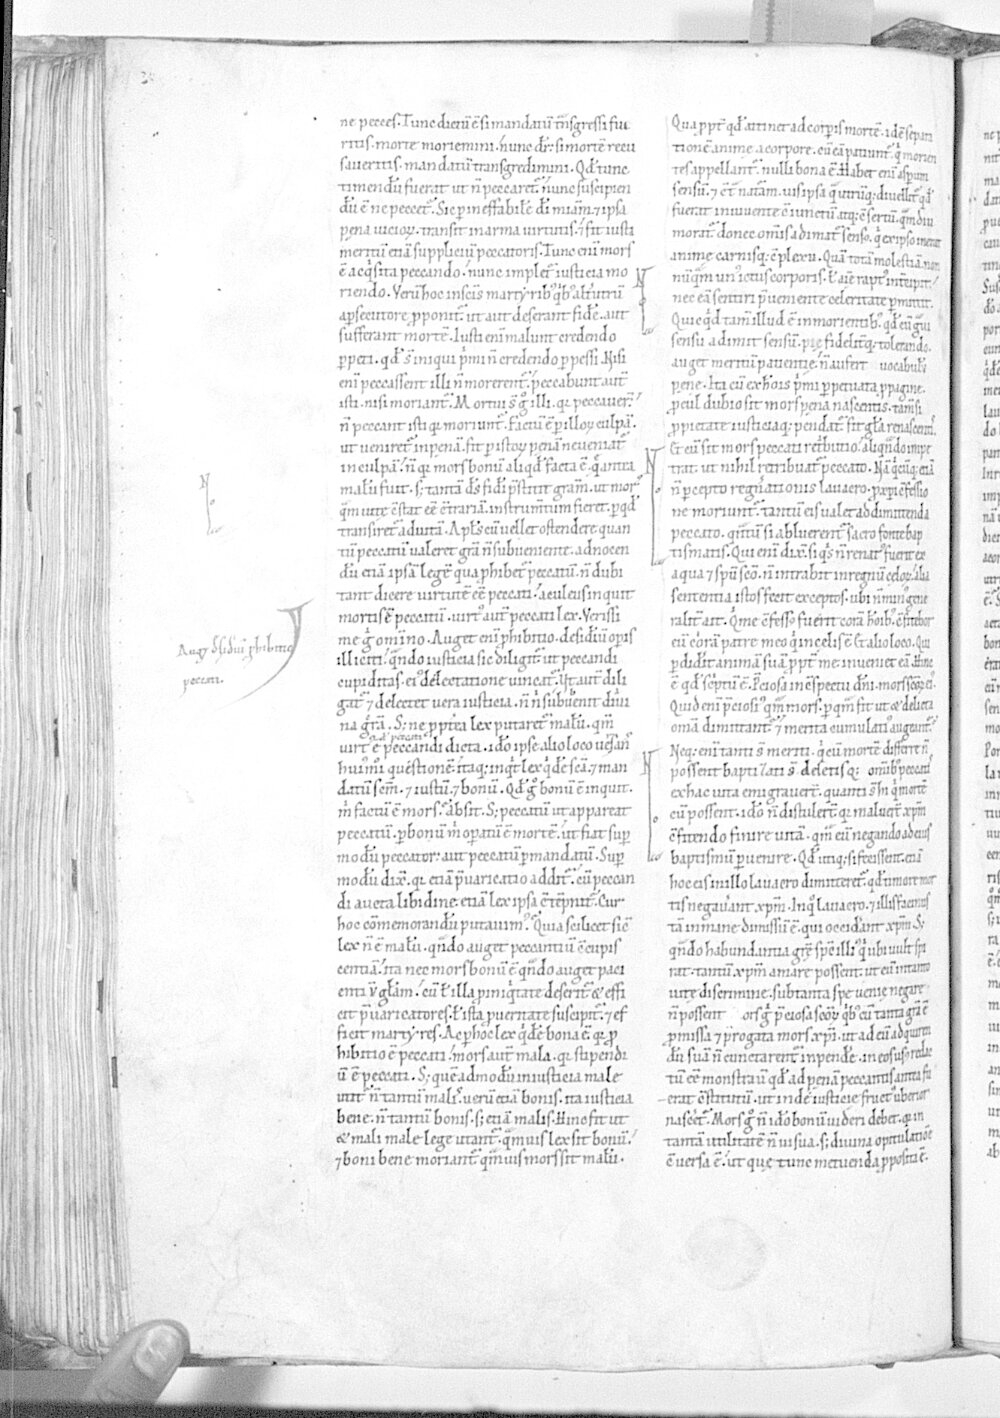 ne pecces. Tunc dictū ē si mandatū tn̄sgressi fue
ritis. morte moriemini. nunc dr̄. si mortē recu
saveritis. mandatū transgredimini. Qd̄ tunc
timendū fuerat ut n̄ peccaret᷑. nunc suscipien
dū ē ne peccet᷑. Sic p ineffabilē dī miam̄. ⁊ ipsa
pena vicioꝝ. transit in arma virtutis. ⁊ fit iusti
meritū etiā suppliciū peccatoris. Tunc enī mors
ē acq̄sita peccando. nunc implet᷑ iusticia mo
riendo. Verū hoc in scīs martyribꝰ qͥbꝰ alt̄utrū
a psecutore p̄ponit᷑. ut aut deserant fidē. aut
sufferant mortē. Iusti enī malunt credendo
p̱peti. qd̄ s̄ iniqui pͥmi n̄ credendo p̱pessi. Nisi
enī peccassent illi n̄ morerent᷑. peccabunt aut̄
isti. nisi moriant᷑. Mortui s̄ gͦ illi. qꝛ peccaver̄.
n̄ peccant isti qꝛ moriunt᷑. Factū ē p illoꝝ culpā.
ut veniret᷑ in penā. fit p istoꝝ penā ne veniat᷑
in culpā. n̄ qꝛ mors bonū aliqd̄ facta ē. q̄ antea
malū fuit. sꝫ tantā dꝰ fidi p̄stitit gram̄. ut morˢ
quā vite ōstat ēē ōtrariā. instrum̄tum fieret. p qd̄
transiret᷑ ad vitā. Apl̄s cū vellet ostendere quan
tū peccatū valeret grā n̄ subveniente. ad nocen
dū etiā ipsā legē qua phibet᷑ peccatū. n̄ dubi
tavit dicere virtutē ēē peccati. aculeus inquit
mortis ē peccatū. virtꝰ aut̄ peccati lex. Verissi
me gͦ om̄ino. Auget enī phibitio. desideriū opis
illiciti. qn̄do iusticia sic diligit᷑. ut peccandi
cupiditas. eiꝰ delectatione vincat᷑. Ut aut̄ dili
gat᷑ ⁊ delectet vera iusticia. n̄ nͥ subvenit divi
na grā. Sꝫ ne ppt̄ea lex putaret᷑ malū. qm̄
virtꝰ ē peccandi dicta. ido ipse alio loco vers̄ans
huiꝰmoͥ questionē. itaqꝫ inqͥt lex qͥdē scā. ⁊ man
datū scm̄. ⁊ iustū. ⁊ bonū. Qd̄ gͦ bonū ē inquit.
mͥ factū ē mors. Absit. Sꝫ peccatū ut appareat
peccatū. p bonū mͥ opatū ē mortē. ut fiat sup
modū peccator. aut peccatū p mandatū. Sup
modū dix̄. qꝛ etiā p̄varicatio addit᷑. cū peccan
di aucta libidine. etiā lex ipsa ōtēpnit᷑. Cur
hoc cōmemorandū putavimꝰ. Quia scilicet sic̄
lex n̄ ē malū. qn̄do auget peccantiū ōcupis
centiā. ita nec mors bonū ē qn̄do auget paci
entiū glām. cū ł illa p iniqͥtate deserit᷑ & effi
cit p̄varicatores. ł ista p veritate suscipit᷑. ⁊ ef
ficit martyres. Ac p hoc lex qͥdē bona ē. qꝛ p
hibitio ē peccati. mors aut̄ mala. qꝛ stipendi
ū ē peccati. Sꝫ quēadmodū iniusticia male
utit᷑ n̄ tantū malis. verū etiā bonis. ita iusticia
bene. n̄ tantū bonis. sꝫ etiā malis. Hinc fit ut
& mali male lege utant᷑. quāvis lex sit bonū.
⁊ boni bene moriant᷑ quāvis mors sit malū.
Aug& d̄sideriū phibitio
peccati.
Quapp̄t qd̄ attinet ad corpis mortē. id ē separa
tionē anime a corpore. cū eā patiunt᷑. qͥ morien
tes appellant᷑. nulli bona ē. Habet enī aspum
sensū. ⁊ ōt̄ natām. vis ipsa qua utrūqꝫ divellit᷑ qd̄
fuerat in vivente ōiunctū atqꝫ ōsertū. quādiu
morat᷑. donec om̄is adimat᷑ sensꝰ. qͥ ex ipso inerat
anime carnisqꝫ ōplexu. Quā totā molestiā. non
nūquā unꝰ ictus corporis. ł aīe raptꝰ int̄cipit.
nec eā sentiri p̄veniente celeritate pmittit.
Quicqͥd tam̄ illud ē in morientibꝰ qd̄ cū gͣvi
sensu adimit sensū. pie fidelitqꝫ tolerando.
auget meritū patientie. n̄ aufert vocabulū
pene. Ita cū ex hoīs pͥmi ppetuata ppagine.
pcul dubio sit mors pena nascentis. tam̄ si
p pietate iusticiaqꝫ pendat᷑. fit glā renascentiˢ.
Et cū sit mors peccati retributio. aliqn̄do impe
trat. ut nihil retribuat᷑ peccato. Nā qͥcūqꝫ etiā
n̄ pcepto regn̄ationis lavacro. p xp̄i ōfessio
ne moriunt᷑. tantū eis valet ad dimittenda
peccata. quātū si abluerent᷑ sacro fonte bap
tismatis. Qui enī dix̄. si qͥs n̄ renatꝰ fuerit ex
aqua ⁊ spū scō. n̄ intrabit in regnū celoꝝ. alia
sententia istos fecit exceptos. ubi n̄ minꝰ gene
ralit̄ ait. Qͥ me ōfessꝰ fuerit corā hoībꝰ. ōfitebor
eū corā patre meo qͥ in celis ē. Et alio loco. Qui
pdidit animā suā ppt̄ me. inveniet eā. Hinc
ē qd̄ sc̄ptū ē. P̄ciosa in ōspectu dnī. mors scōꝝ eiꝰ.
Quid enī p̄ciosiꝰ quā mors. p quā fit ut & delicta
om̄ia dimittant᷑. ⁊ merita cumulatiꝰ augeant᷑.
Neqꝫ enī tanti s̄ meriti. qͥ cū mortē differre n̄
possent baptizati s̄. deletisqꝫ omībꝰ peccatis
ex hac vita emigraver̄t. quanti s̄ hi qͥ mortē
cū possent. ido n̄ distulert̄. qꝛ maluer̄t xp̄m
ōfitendo finire vitā. quā eū negando ad eius
baptismū pvenire. Qd̄ utiqꝫ si fecissent. etiā
hoc eis in illo lavacro dimitteret᷑. qd̄ timore mor
tis negav̄ant xp̄m. In qͦ lavacro. ⁊ illis facinus
tā inmane dimissū ē. qui occid̄ant xp̄m. Sꝫ
qn̄do habundantia gr̄e spc̄ illiꝰ qͥ ubi vult spi
rat. tantū xp̄m amare possent. ut eū in tanto
vite discrimine. sub tanta spe venie negare
n̄ possent ors gͦ p̄ciosa scōꝝ qͥbꝰ cū tanta grā ē
p̄missa ⁊ p̄rogata mors xp̄i. ut ad eū adquiren
dū suā n̄ cunctarent᷑ inpendē. in eos usꝰ redac
tū ēē monstravit. qd̄ ad penā peccantis antea fu
erat ōstitutū. ut inde iusticie fructꝰ uberior
nascet᷑. Mors gͦ n̄ ido bonū videri debet. qꝛ in
tantā utilitatē n̄ vi sua. sꝫ divina opitulatiōe
ōversa ē. ut que tunc metuenda pposita ē.